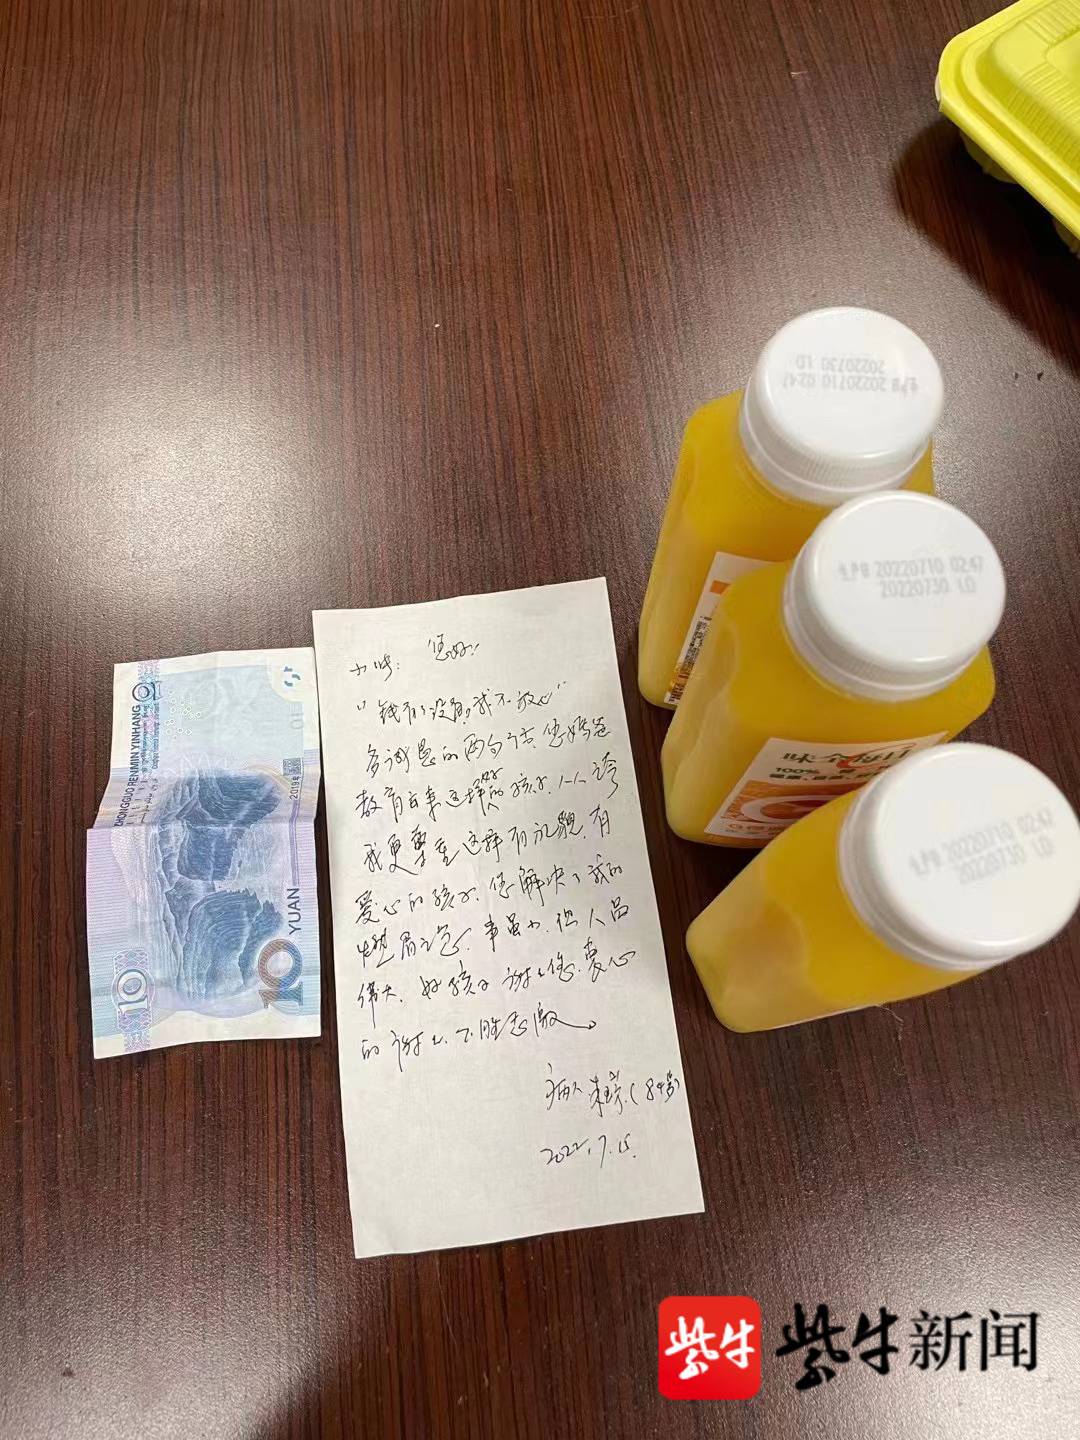 小哗: 您好!
"钱有没有,我不放心"
多谢您的两句话,您妈爸
教育出来这样好的孩子,人人夸
我更尊重这样有礼貌,有
爱心的孩子,您解决了我的
燃眉之急,事虽小,但人品
伟大,好孩子谢谢您,爱心
的谢谢,不胜感激。
病人 (84岁)
2022.7.15.
ZHONGGUO RENMIN YINHANG
2019年
10
YUAN
10
生产日 20220710 02:47
20220730 LD
生产日 20220710 02:47
20220730 LD
味全每日C
100%
生产日 20220710 02:47
20220730 LD
紫牛 紫牛新闻